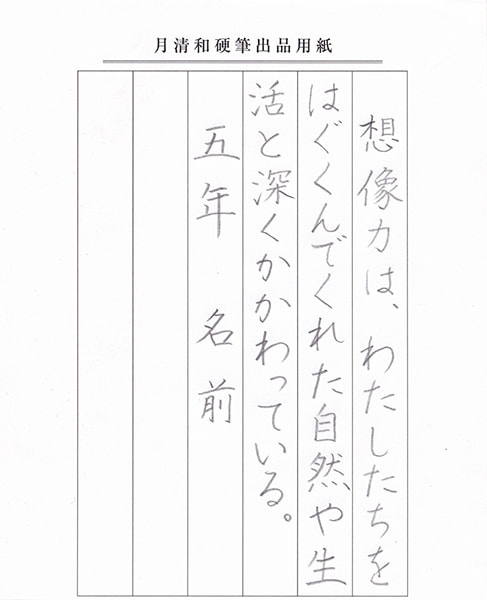 月清和硬筆出品用紙
想像力は、わたしたちを
はぐくんでくれた自然や生
活と深くかかわっている。
五年　名前